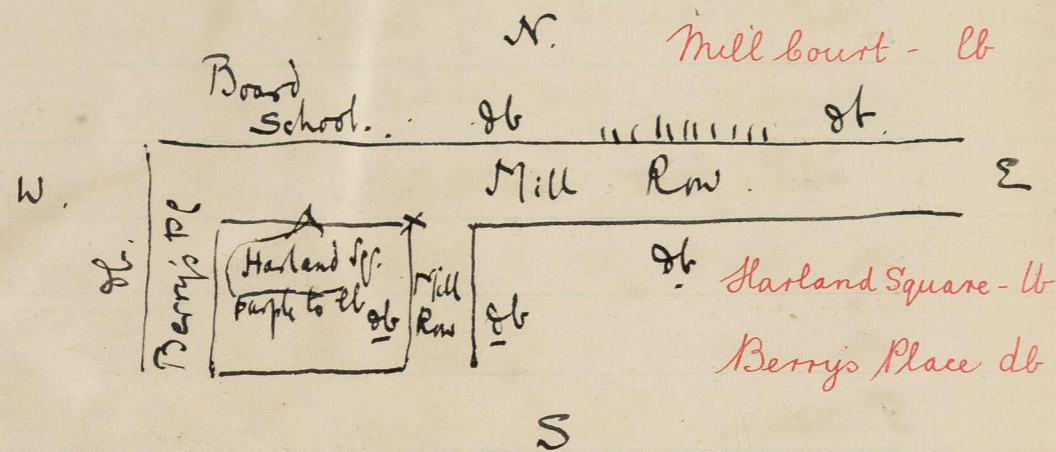 N.
Mill Court - lb
Board
School.
db
db.
W.
Mill Row.
E
db.
Berry's Pl
Harland Sq.
purple to lb
db
Mill
Row
db
db
Harland Square - lb
Berrys Place db
S